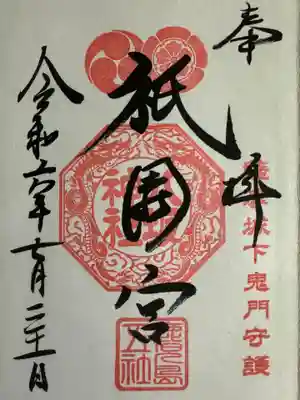 奉拝
城下鬼門守護
祇園宮
八坂神社
鹿児島五社
令和六年七月二十一日